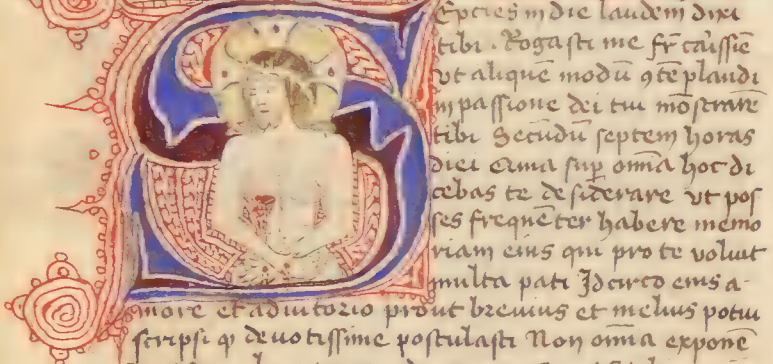 Epties in die laudem dixi
tibi . Rogasti me fr̄ cariss̄ie
vt aliquē modū ꝯtēplandi
in passione dei tui mōstrarē
tibi Secūdū septem horas
diei Cum a sup̄ om̄ia hoc di
cebas te desiderare vt pos
ses frequēter habere memo
riam eius qui pro te voluit
multa pati Idcirco eius a-
more et adiutorio prout breuius et melius potui
scripsi ꝙ deuotissime postulasti Non om̄ia exponē